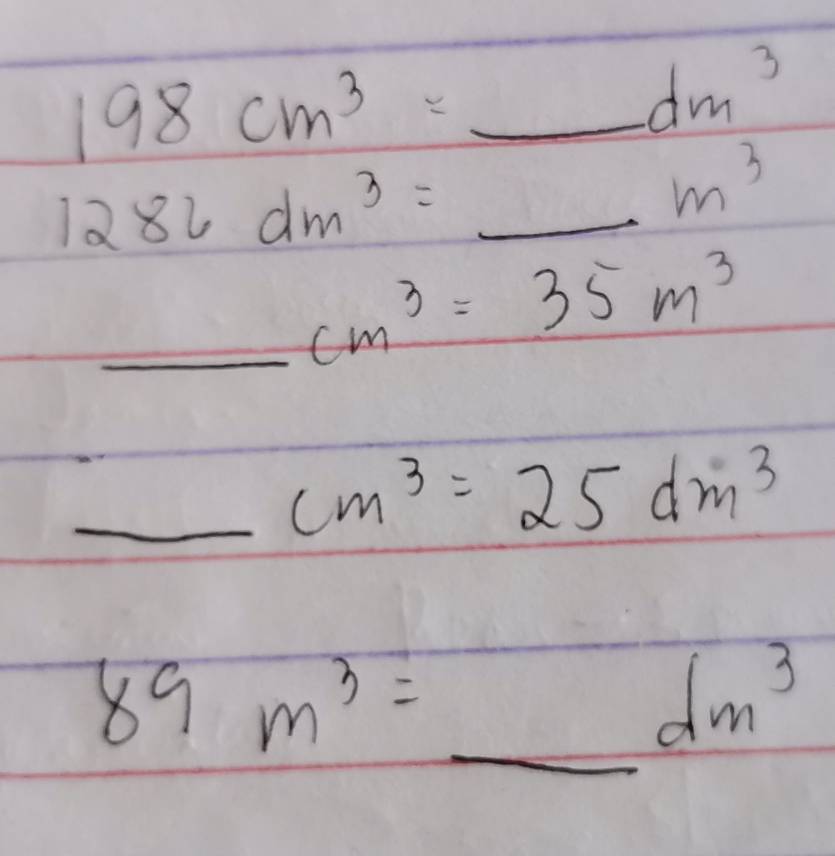 198 cm³ = ___ dm³
1282 dm³ = ___ m³
___ cm³ = 35 m³
___ cm³ = 25 dm³
89 m³ = ___ dm³